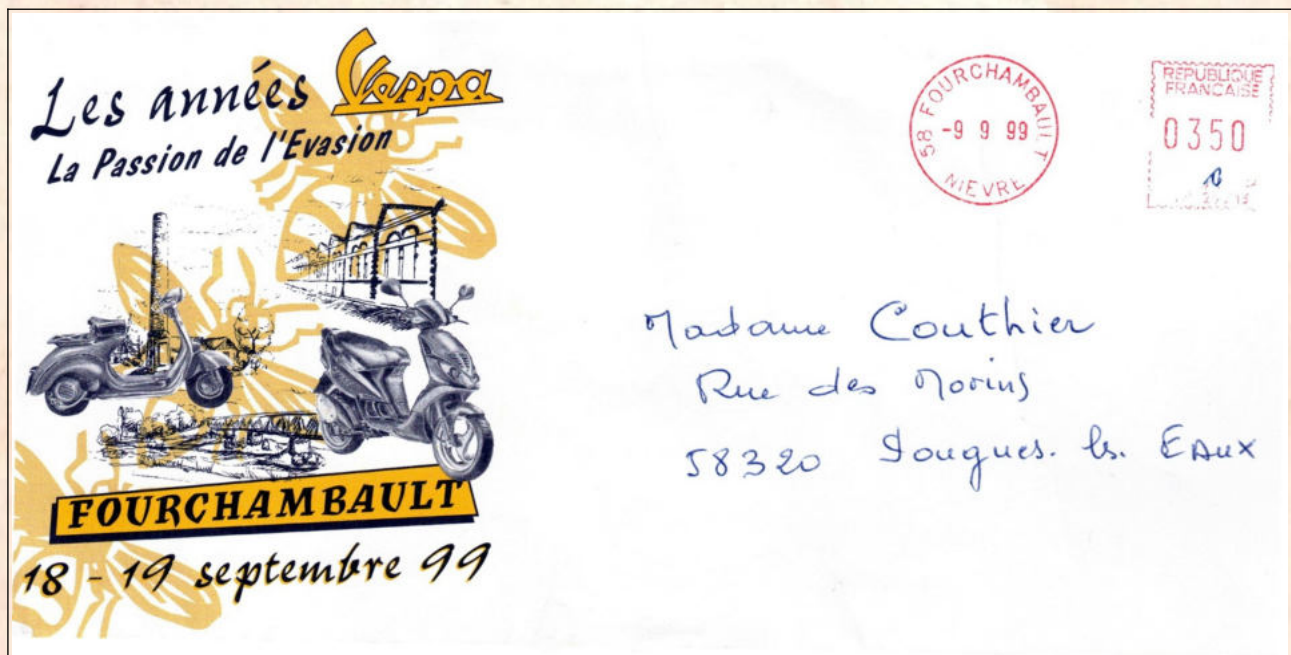 Les années Vespa
La Passion de l'Evasion
FOURCHAMBAULT
18 - 19 septembre 99
58 FOURCHAMBAULT
-9 9 99
NIEVRE
REPUBLIQUE
FRANCAISE
0350
Madame Couthier
Rue des Morins
58320 Pougues. les. EAux